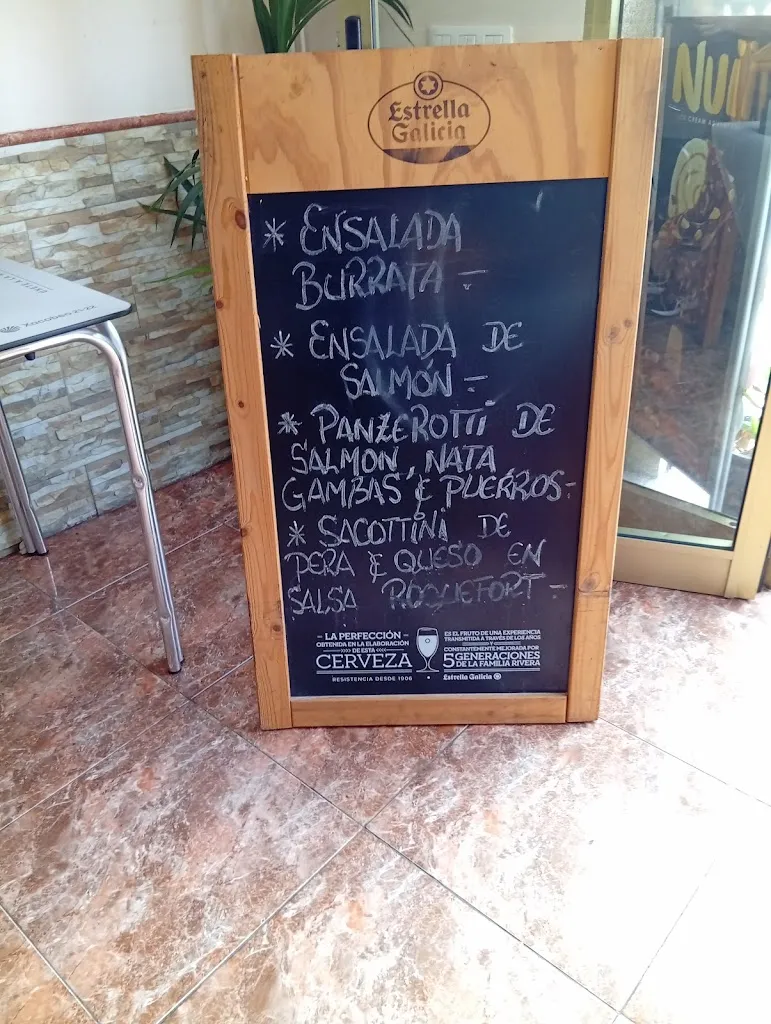 Estrella
Galicia
* ENSALADA
BURRATA -
* ENSALADA DE
SALMÓN -
* PANZEROTTI DE
SALMON, NATA
GAMBAS & PUERROS-
* SACOTTINI DE
PERA & QUESO EN
SALSA ROQUEFORT -
- LA PERFECCIÓN -
OBTENIDA EN LA ELABORACIÓN
DE ESTA
CERVEZA
RESISTENCIA DESDE 1906
ES EL FRUTO DE UNA EXPERIENCIA
TRANSMITIDA A TRAVÉS DE LOS AÑOS
Y
CONSTANTEMENTE MEJORADA POR
5 GENERACIONES
DE LA FAMILIA RIVERA
Estrella Galicia
Xacobeo 21·22